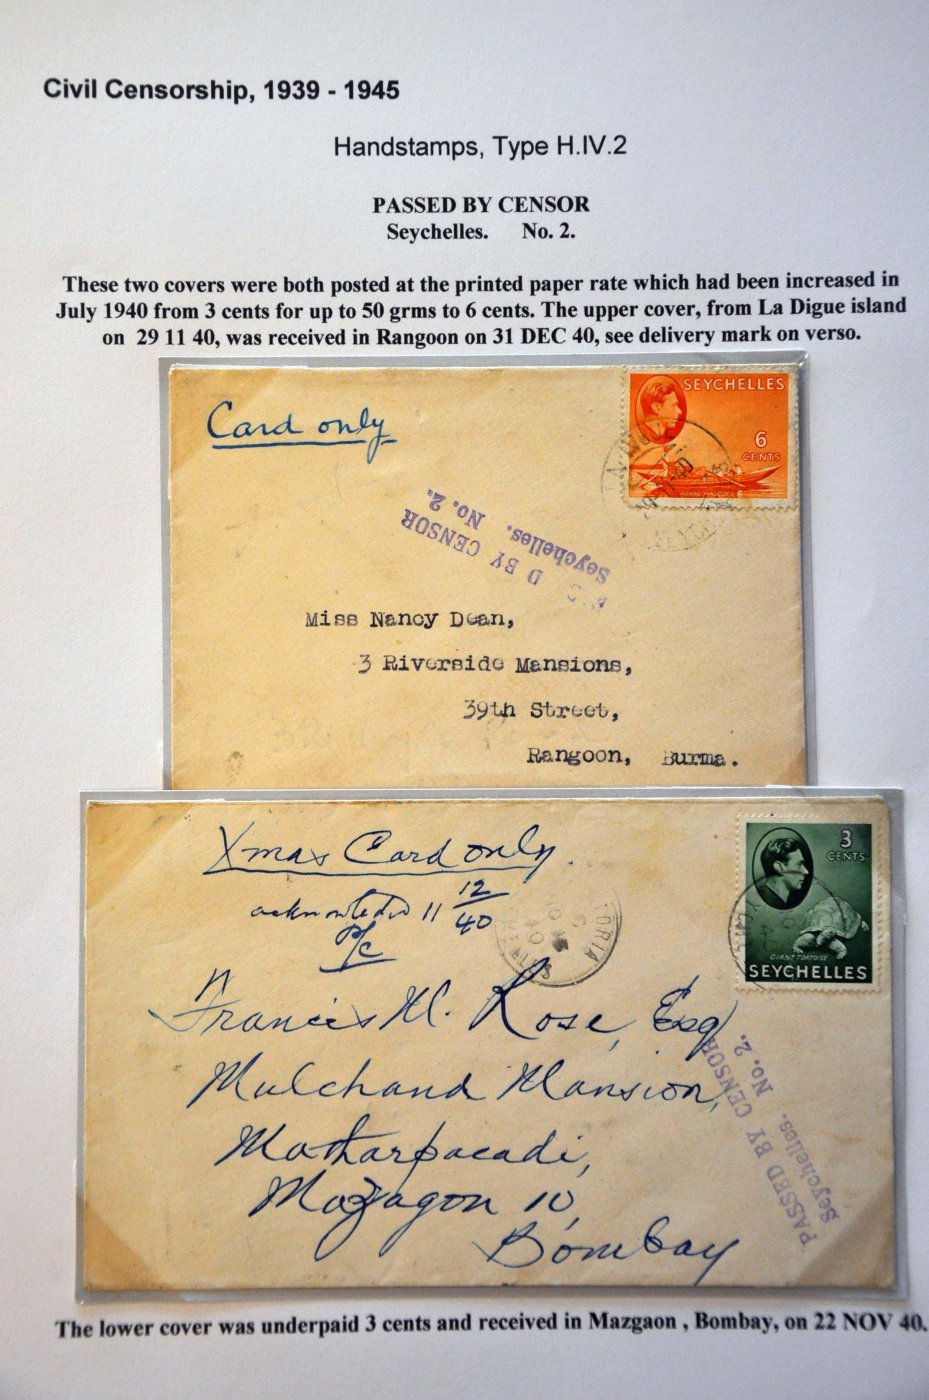 Civil Censorship, 1939 - 1945
Handstamps, Type H.IV.2
PASSED BY CENSOR
Seychelles. No. 2.
These two covers were both posted at the printed paper rate which had been increased in
July 1940 from 3 cents for up to 50 grms to 6 cents. The upper cover, from La Digue island
on 29 11 40, was received in Rangoon on 31 DEC 40, see delivery mark on verso.
Card only
SEYCHELLES
6
CENTS
FISHING PIROGUE
D BY CENSOR
Seychelles. No. 2.
Miss Nancy Dean,
3 Riverside Mansions,
39th Street,
Rangoon, Burma.
Xmas Card only.
acknowledged 11 12/40
P/C
3
CENTS
GIANT TORTOISE
SEYCHELLES
TORIA
Francis M. Rose, Esq
Mulchand Mansion,
Matharpacadi,
Mazagon 10,
Bombay
PASSED BY CENSOR
Seychelles. No. 2.
The lower cover was underpaid 3 cents and received in Mazgaon , Bombay, on 22 NOV 40.